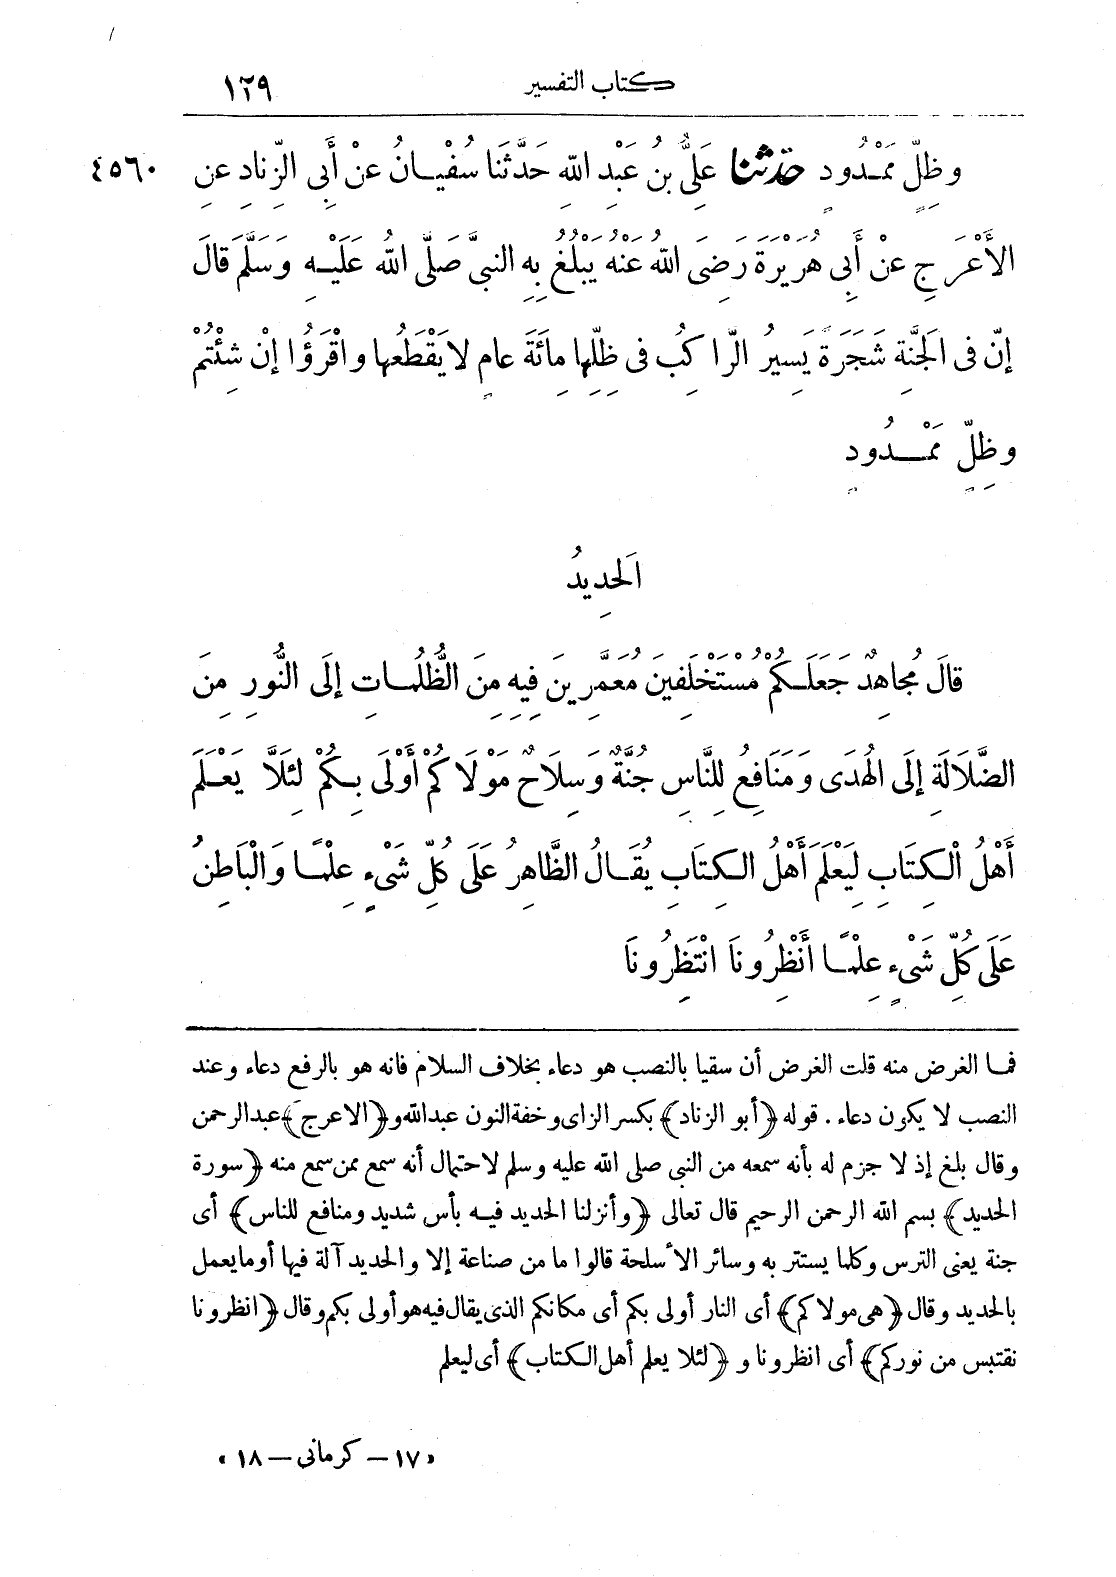 كتاب التفسير ١٢٩
وَظِلٍّ مَمْدُودٍ حَدَّثَنَا عَلِيُّ بْنُ عَبْدِ اللهِ حَدَّثَنَا سُفْيَانُ عَنْ أَبِى الزِّنَادِ عَنِ ٤٥٦٠
الأَعْرَجِ عَنْ أَبِى هُرَيْرَةَ رَضِىَ اللهُ عَنْهُ يَبْلُغُ بِهِ النبىَّ صَلَّى اللهُ عَلَيْهِ وَسَلَّمَ قَالَ
إِنَّ فِى الْجَنَّةِ شَجَرَةً يَسِيرُ الرَّاكِبُ فِى ظِلِّهَا مِائَةَ عَامٍ لَا يَقْطَعُهَا وَاقْرَؤُا إِنْ شِئْتُمْ
وَظِلٍّ مَمْدُودٍ
الْحَدِيدُ
قَالَ مُجَاهِدٌ جَعَلَكُمْ مُسْتَخْلَفِينَ مُعَمَّرِينَ فِيهِ مِنَ الظُّلُمَاتِ إِلَى النُّورِ مِنَ
الضَّلَالَةِ إِلَى الْهُدَى وَمَنَافِعُ لِلنَّاسِ جُنَّةٌ وَسِلَاحٌ مَوْلَاكُمْ أَوْلَى بِكُمْ لِئَلَّا يَعْلَمَ
أَهْلُ الْكِتَابِ لِيَعْلَمَ أَهْلُ الْكِتَابِ يُقَالُ الظَّاهِرُ عَلَى كُلِّ شَىْءٍ عِلْمًا وَالْبَاطِنُ
عَلَى كُلِّ شَىْءٍ عِلْمًا أَنْظِرُونَا انْتَظِرُونَا
فما الغرض منه قلت الغرض أن سقيا بالنصب هو دعاء بخلاف السلام فانه هو بالرفع دعاء وعند
النصب لا يكون دعاء . قوله ﴿أبو الزناد﴾ بكسر الزاى وخفة النون عبدالله و﴿الاعرج﴾ عبدالرحمن
وقال بلغ إذ لا جزم له بأنه سمعه من النبى صلى الله عليه وسلم لاحتمال أنه سمع ممن سمع منه ﴿سورة
الحديد﴾ بسم الله الرحمن الرحيم قال تعالى ﴿وأنزلنا الحديد فيه بأس شديد ومنافع للناس﴾ أى
جنة يعنى الترس وكلما يستتر به وسائر الأسلحة قالوا ما من صناعة إلا والحديد آلة فيها أو ما يعمل
بالحديد وقال ﴿هى مولاكم﴾ أى النار أولى بكم أى مكانكم الذى يقال فيه هو أولى بكم وقال ﴿انظرونا
نقتبس من نوركم﴾ أى انظرونا و ﴿لئلا يعلم أهل الكتاب﴾ أى ليعلم
«١٧ – كرمانى – ١٨»